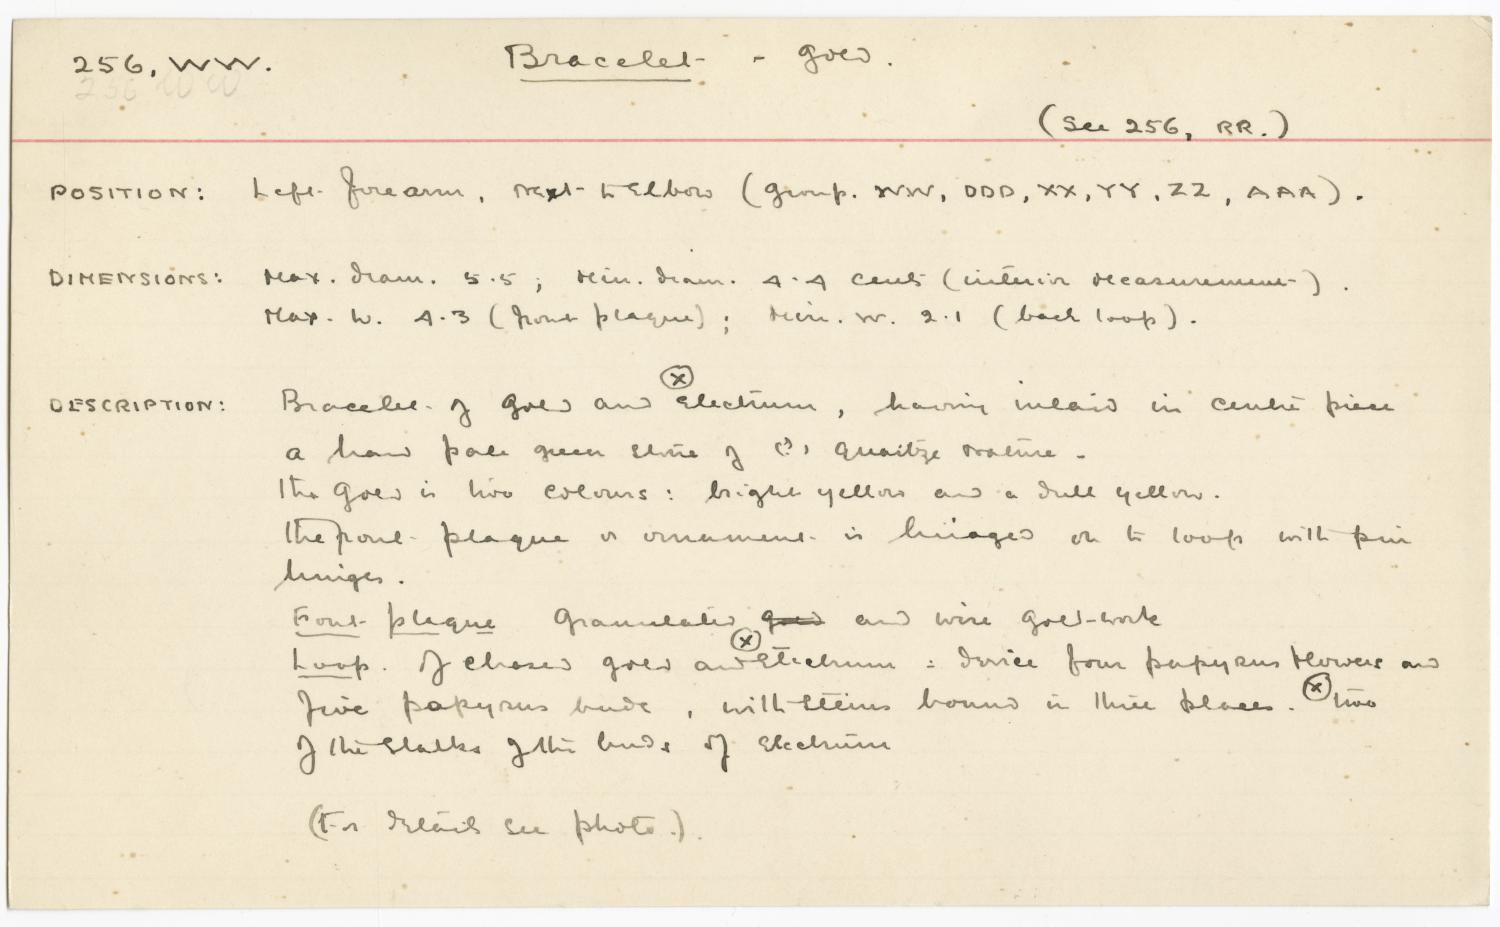 256, WW. Bracelet - gold.
256 WW
(See 256, RR.)
POSITION: Left forearm, next to Elbow (group. WW, DDD, XX, YY, ZZ, AAA).
DIMENSIONS: Max. diam. 5.5; Min. diam. 4.4 cents (interior measurement).
Max. W. 4.3 (front plaque); Min. W. 2.1 (back loop).
DESCRIPTION: Bracelet of gold and ⓧ Electrum, having inlaid in centre piece
a hard pale green stone of (?) quartze nature.
The gold is two colours: bright yellow and a dull yellow.
The front plaque or ornament is hinged on to loop with pin
hinges.
Front plaque Granulated gold and wire gold-work
Loop. Of chased gold and ⓧ Electrum: device four papyrus flowers and
five papyrus buds, with stems bound in three places. ⓧ two
of the stalks of the buds of Electrum
(For details see photo.).